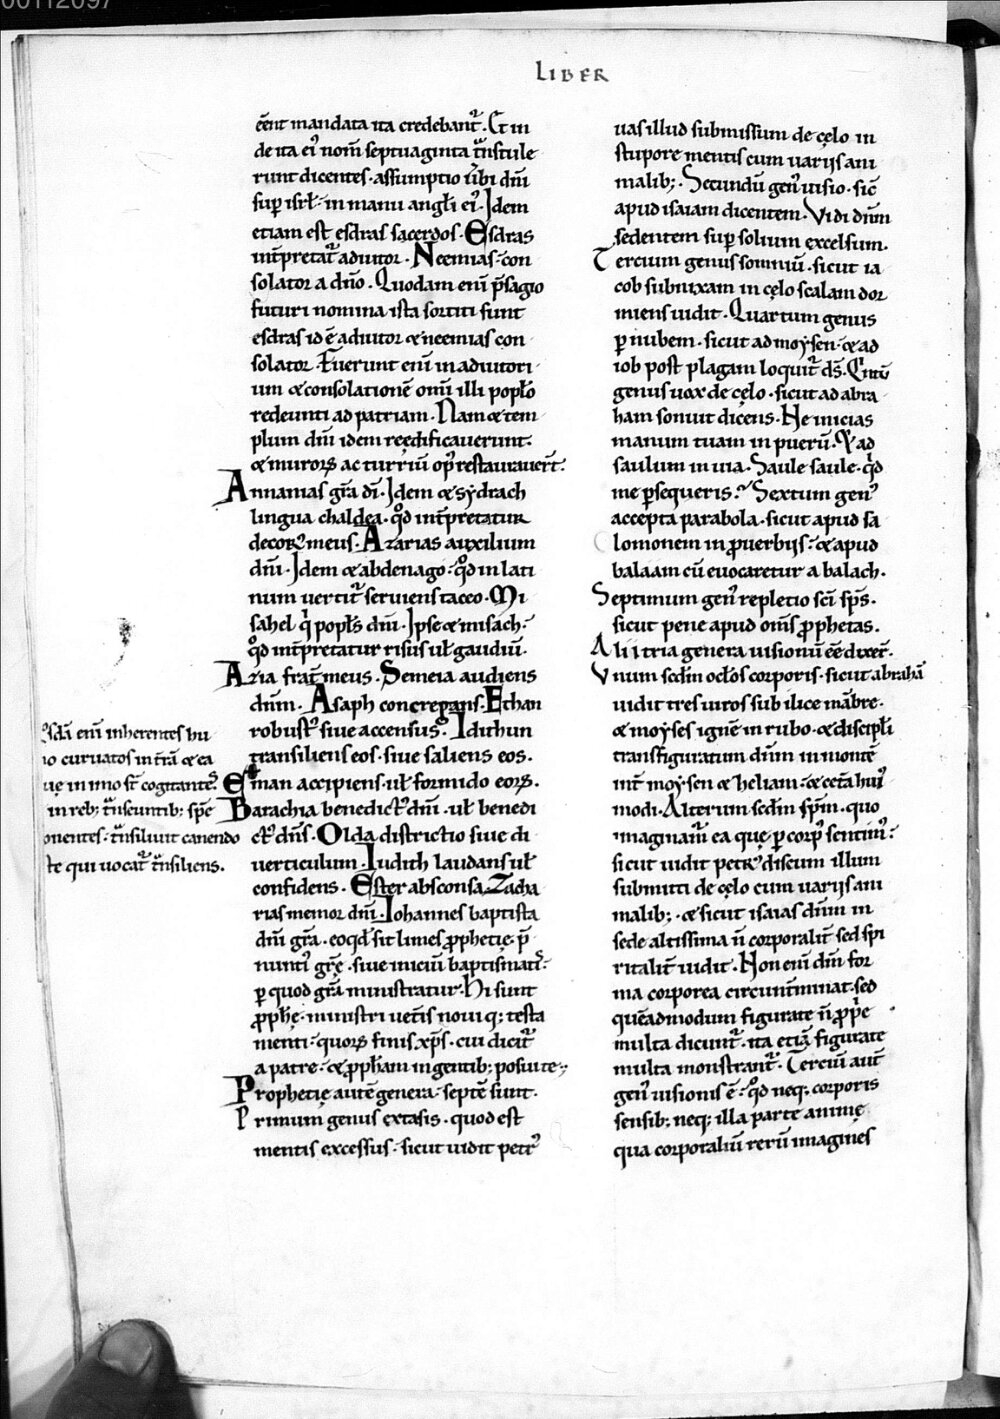 00112097
LIBER
eēnt mandata ita credebant᷑. Et in
de ita ei᷒ nom̄ septuaginta t̄nstule
runt dicentes. assumptio ūbi dn̄i
sup̱ isrl̄. in manu angl̄i ei᷒. Idem
etiam est esdras sacerdos. Esdras
int̄pretat᷑ adiutor. Neemias. con
solator a dn̄o. Quodam enī p̄sagio
futuri nomina ista sortiti sunt
esdras id ē adiutor & neemias con
solator. Fuerunt enī in adiutori
um & consolationē omī illi popl̄o
redeunti ad patriam. Nam & tem
plum dn̄i idem reędificauerunt.
& muroꝝ ac turriū op᷒ restauraueᷣrt.
Annanias gr̄a dī. Idem & sydrach
lingua chaldea. qd̄ int̄pretatur
decor᷒ meus. Azarias auxilium
dn̄i. Idem & abdenago. qd̄ in lati
num uertit᷑ seruiens taceo. Mi
sahel qi popl̄s dn̄i. Ipse & misach.
qd̄ int̄pretatur risus ul̄ gaudiū.
Azia frat̄ meus. Semeia audiens
dn̄m. Asaph concrepans. Ethan
robust᷒ siue accensus. Idithun
transiliens eos. siue saliens eos.
Eman accipiens. ul̄ formido eoꝝ.
Barachia benedict᷒ dn̄i. ul̄ benedi
ct᷒ dn̄s. Olda districtio siue di
uerticulum. Iudith laudans ul̄
confidens. Ester absconsa. Zacha
rias memor dn̄i. Iohannes baptista
dn̄i gr̄a. eo qd̄ sit limes ꝓphetię. p̄
nunti᷒ grę̄. siue iniciū baptismati᷒.
ꝑ quod gr̄a ministratur. Hi sunt
ꝓphę̄. ministri uet̄is noui q; testa
menti. quoꝝ finis xp̄s. cui dicit᷑
a patre. & ꝓph̄am in gentib; posui te;
Prophetię autē genera. septē sunt.
Primum genus extasis. quod est
mentis excessus. sicut uidit petr᷒
sdā enī inherentes hu
curuatos in t̄rā & ea
in imo sī cogitantes.
in reb; t̄nseuntib; spē
onentes. t̄nsiliuit canendo
te qui uocat᷑ t̄nsiliens.
uas illud submissum de cęlo in
stupore mentis cum uarijs ani
malib;. Secundū gen᷒ uisio. sic̄
apud isaiam dicentem. Vidi dn̄m
sedentem sup̱ solium excelsum.
Tercium genus somniū. sicut ia
cob subnixam in cęlo scalam dor
miens uidit. Quartum genus
ꝑ nubem. sicut ad moysen. & ad
iob post plagam loquit᷑ ds̄. Qintū
genus uox de cęlo. sicut ad abra
ham sonuit dicens. Ne inicias
manum tuam in puerū. Et ad
saulum in uia. Saule saule. qd̄
me ꝑsequeris? Sextum gen᷒
accepta parabola. sicut apud sa
lomonem in ꝓuerbijs. & apud
balaam cū euocaretur a balach.
Septimum gen᷒ repletio sc̄i sps̄.
sicut pene apud om̄s ꝓphetas.
Alii tria genera uisionū eē dixer̄.
Vnum scd̄m ocl̄os corporis. sicut abrahā
uidit tres uiros sub ilice mābre.
& moyses ignē in rubo. & discipl̄i
transfiguratum dn̄m in montē
int̄ moysen & heliam. & cet̄a hui᷒
modi. Alterum scd̄m spm̄. quo
imaginam᷑ ea quę ꝑ corp᷒ sentim᷒.
sicut uidit petr᷒ discum illum
submitti de cęlo cum uarijs ani
malib;. & sicut isaias dn̄m in
sede altissima n̄ corporalit̄ sed spi
ritalit̄ uidit. Non enī dn̄m for
ma corporea circumt̄minat. sed
quēadmodum figurate n̄ ꝓpe
multa dicunt᷑. ita etiā figurate
multa monstrant᷑. Terciū aut̄
gen᷒ uisionis ē. qd̄ neq; corporis
sensib; neq; illa parte animę
qua corporaliū rerū imagines